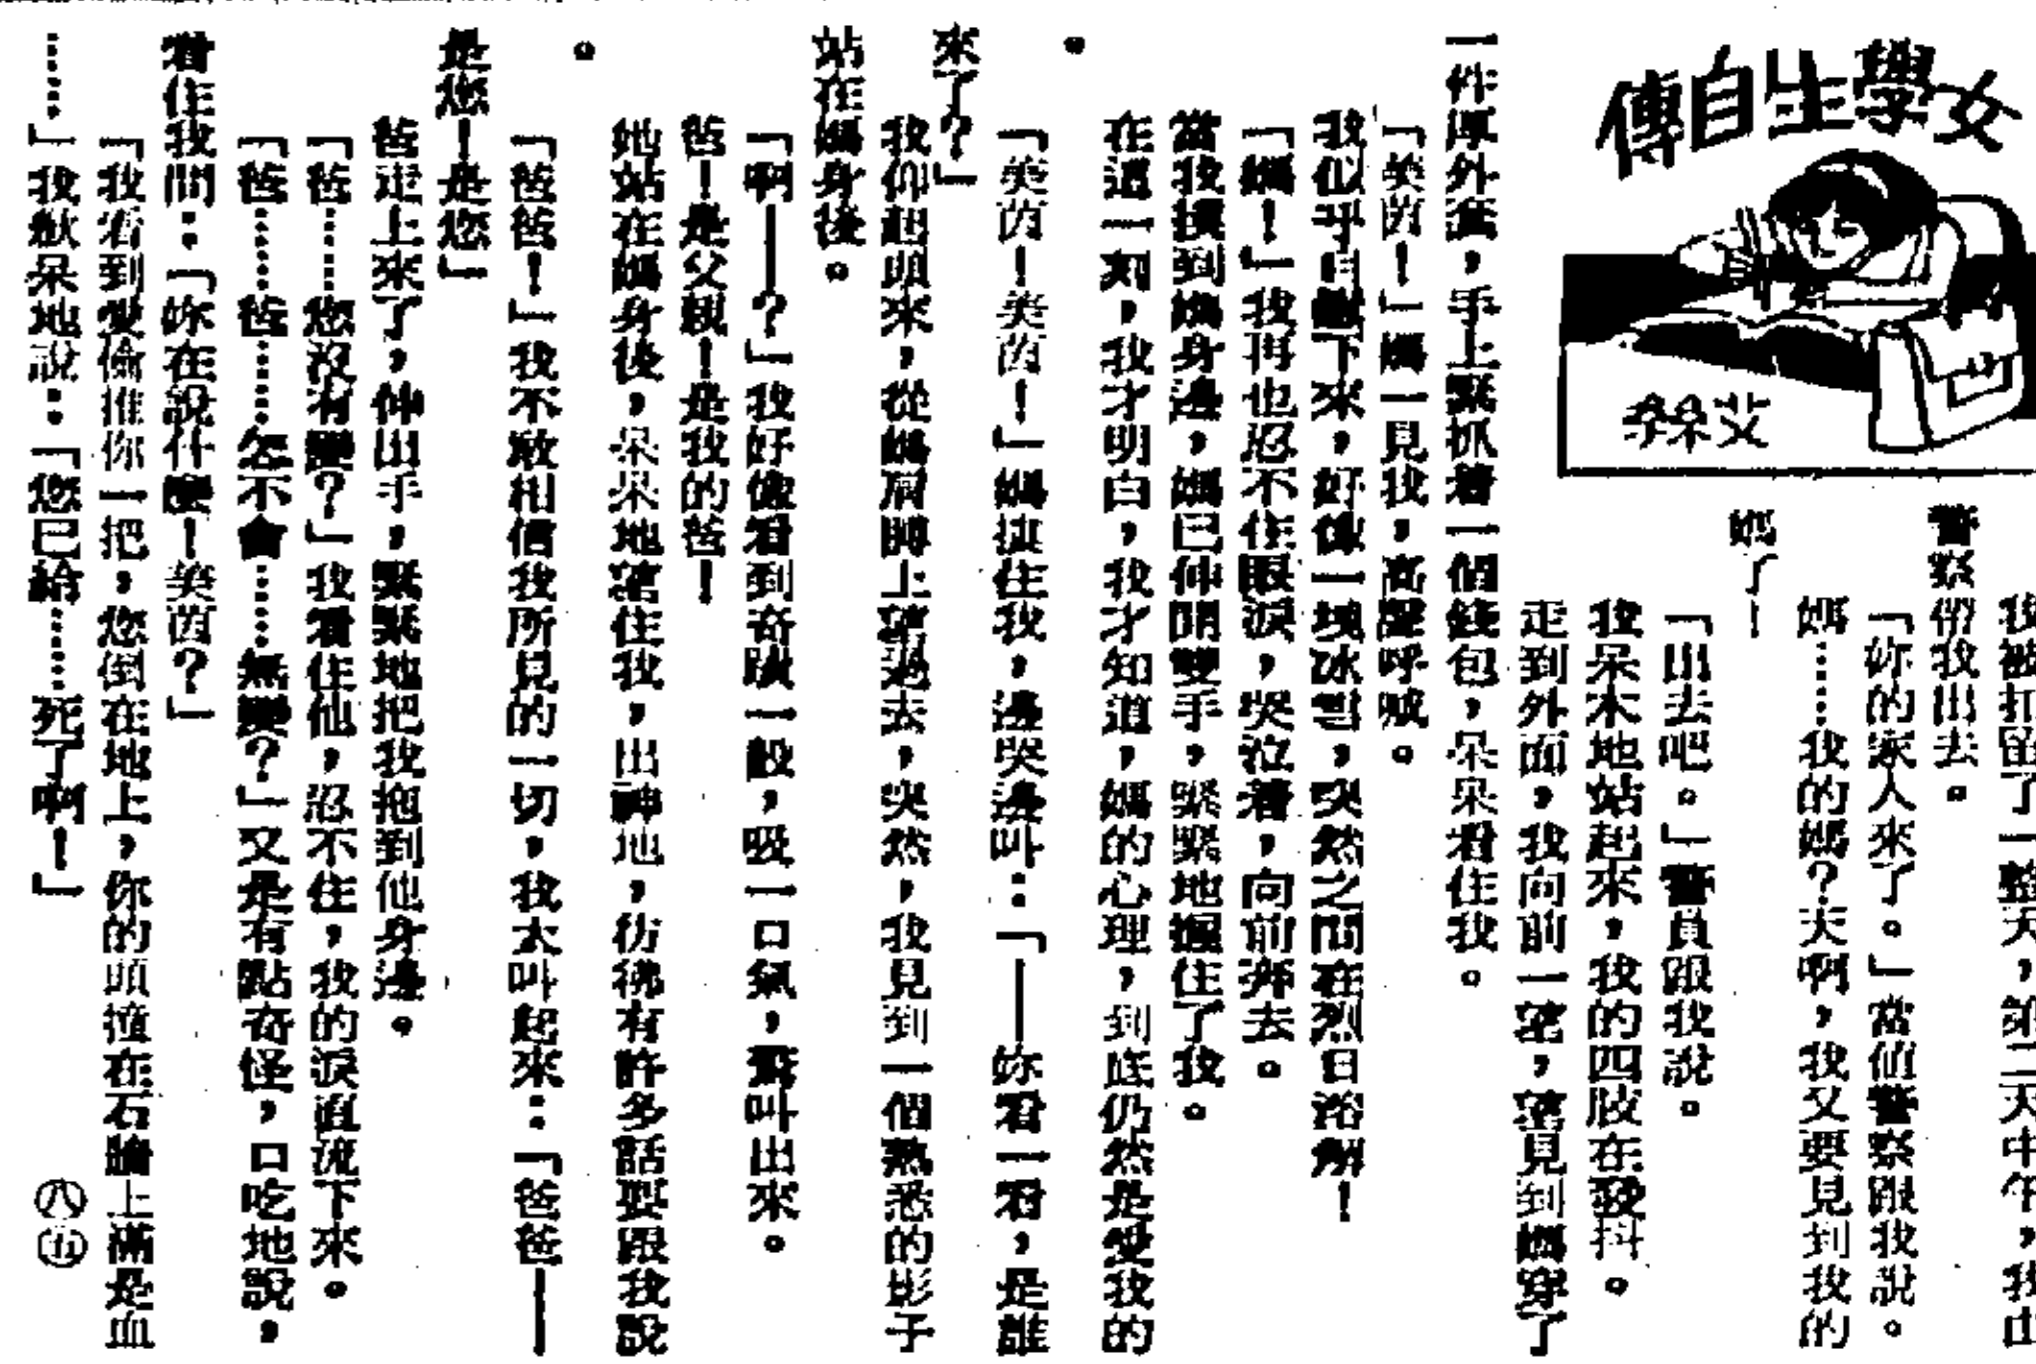 女學生自傳
艾朵
我被扣留了一整天，第二天中午，我由
警察帶我出去。
「妳的家人來了。」當値警察跟我説。
媽……我的媽？天啊，我又要見到我的
媽了！
「出去吧。」警員跟我説。
我呆木地站起來，我的四肢在發抖。
走到外面，我向前一望，望見到媽穿了
一件厚外套，手上緊抓着一個錢包，呆呆看住我。
「美茵！」媽一見我，高聲呼喊。
我似乎自　下來，好像一塊冰　，突然之間在烈日溶解！
「媽！」我再也忍不住眼淚，哭泣着，向前奔去。
當我撲到媽身邊，媽已伸開雙手，緊緊地握住了我。
在這一刻，我才明白，我才知道，媽的心理，到底仍然是愛我的
。
「美茵！美茵！」媽　住我，邊哭邊叫：「——妳看一看，是誰
來了？」
我仰起頭來，從媽肩膊上望過去，突然，我見到一個熟悉的影子
站在媽身後。
「啊——？」我好像看到奇蹟一般，吸一口氣，驚叫出來。
爸！是父親！是我的爸！
她站在媽身後，呆呆地望住我，出神地，彷彿有許多話要跟我說
。
「爸爸！」我不敢相信我所見的一切，我大叫起來：「爸爸——
是您！是您」
爸走上來了，伸出手，緊緊地把我抱到他身邊。
「爸……您沒有變？」我看住他，忍不住，我的淚直流下來。
「爸……爸……怎不會……無變？」又是有點奇怪，口吃地說，
看住我問：「妳在説什麼！美茵？」
「我看到愛倫推你一把，您倒在地上，你的頭撞在石牆上滿是血
……」我獃呆地說：「您已給……死了啊！」
八五